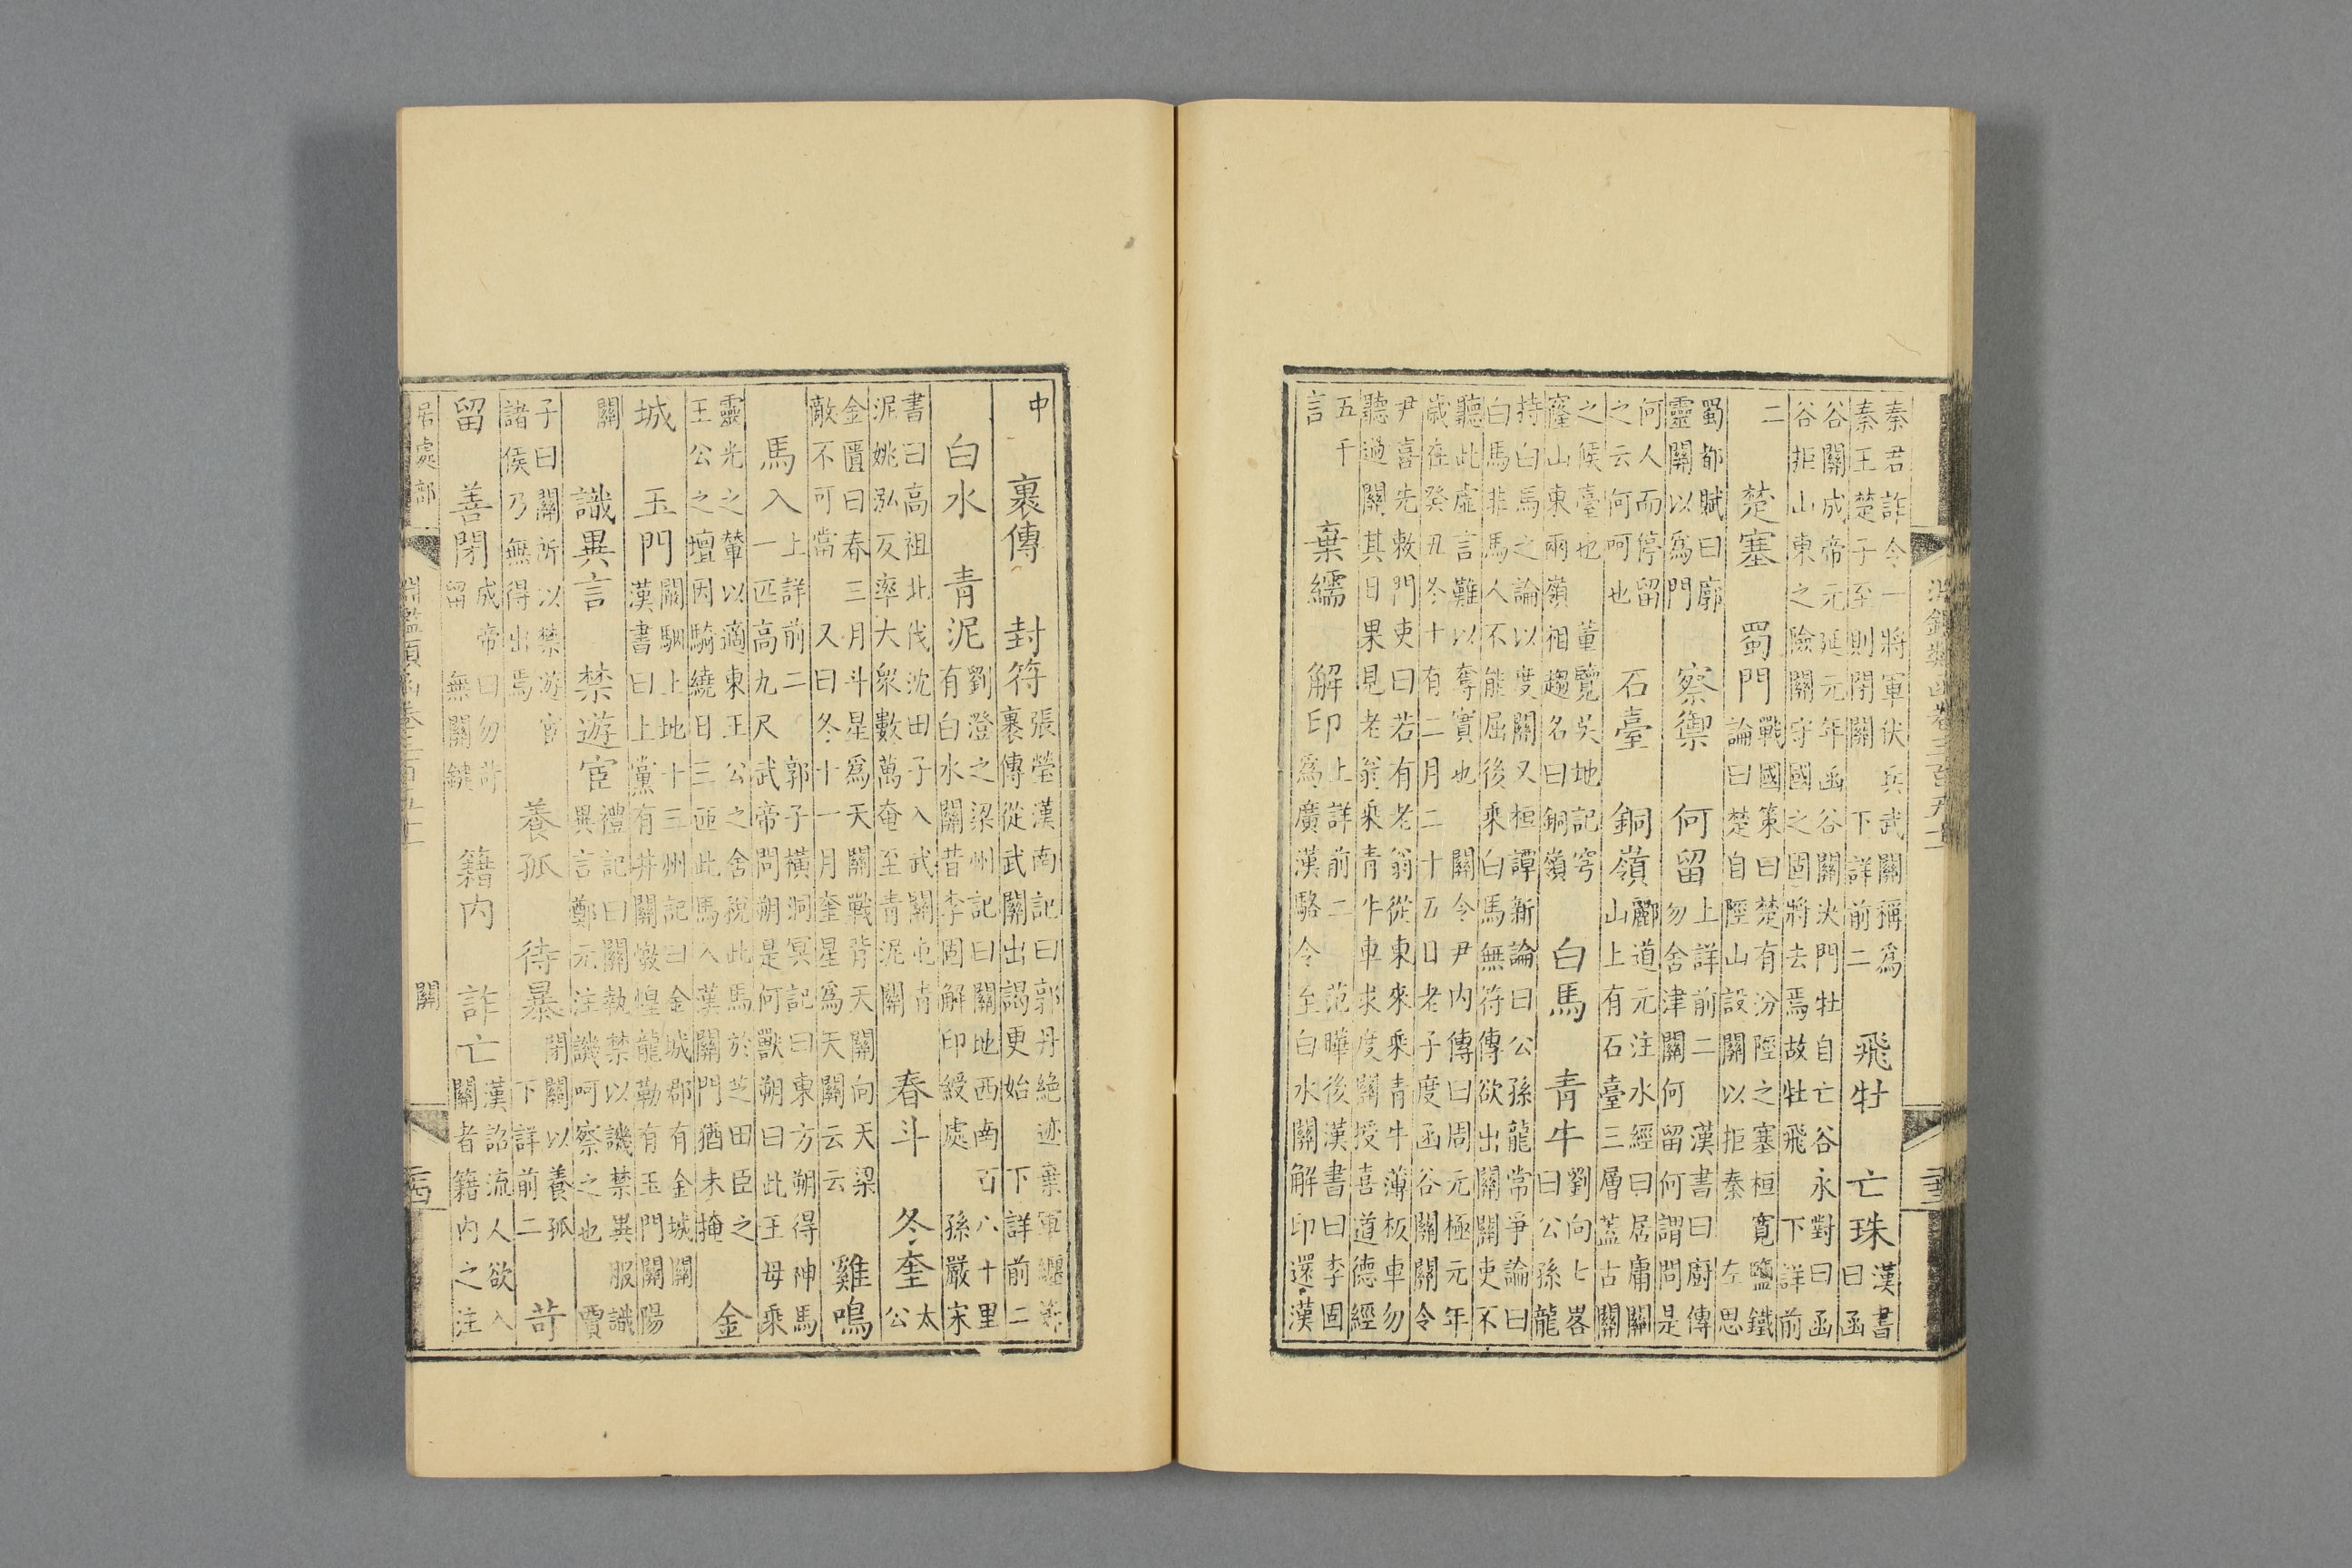 秦君詐令一將軍伏兵武關稱為
秦王楚子至則閉關 下詳前二
飛牡 亡珠
漢書
曰函
谷關成帝元延元年函谷關決門牡自亡谷永對曰函
谷拒山東之險關守國之固將去焉故牡飛 下詳前
二
楚塞 蜀門
戰國策曰楚有汾陘之塞桓寬鹽鐵
論曰楚自陘山設關以拒秦 左思
蜀都賦曰廓
靈關以為門
察禦 何留
上詳前二 漢書曰廚傳
勿舍津關何留何謂問是
何人而停留
之云何呵也
石臺 銅嶺
酈道元注水經曰居庸關
山上有石臺三層蓋古關
之候臺也 董覽吳地記穹
窿山東兩嶺相趨名曰銅嶺
白馬 青牛
劉向七畧
曰公孫龍
持白馬之論以度關又桓譚新論曰公孫龍常爭論曰
白馬非馬人不能屈後乘白馬無符傳欲出關關吏不
聽此虛言難以奪實也 關令尹內傳曰周元極元年
歲在癸丑冬十有二月二十五日老子度函谷關關令
尹喜先敕門吏曰若有老翁從東來乘青牛薄板車勿
聽過關其日果見老翁乘青牛車求度關授喜道德經
五千
言
棄繻 解印
上詳前二 范曄後漢書曰李固
為廣漢駱令至白水關解印還漢
中
裹傳 封符
張瑩漢南記曰郭丹絕迹棄軍纒
裹傳從武關出謁更始 下詳前二
白水 青泥
劉澄之梁州記曰關地西南百八十里
有白水關昔李固解印綬處 孫嚴宋
書曰高祖北伐沈田子入武關屯青
泥姚泓反率大衆數萬奄至青泥關
春斗 冬奎
太
公
金匱曰春三月斗星為天關戰背天關向天梁
敵不可當 又曰冬十一月奎星為天關云云
雞鳴
馬入
上詳前二 郭子橫洞冥記曰東方朔得神馬
一匹高九尺武帝問朔是何獸朔曰此王母乘
靈光之輦以適東王公之舍稅此馬於芝田臣之
王公之壇因騎繞日三匝此馬入漢關門猶未掩
金
城 玉門
闞駰上地十三州記曰金城郡有金城關
漢書曰上黨有井關燉煌龍勒有玉門關陽
關
識異言 禁遊宦
禮記曰關執禁以譏禁異服識
異言鄭元注譏呵察之也 賈
子曰關所以禁遊宦
諸侯乃無得出焉
養孤 待暴
閉關以養孤
下詳前二
苛
留 善閉
成帝曰勿苛
留 無關鍵
籍內 詐亡
漢詔流人欲入
關者籍內之注
居處部
關